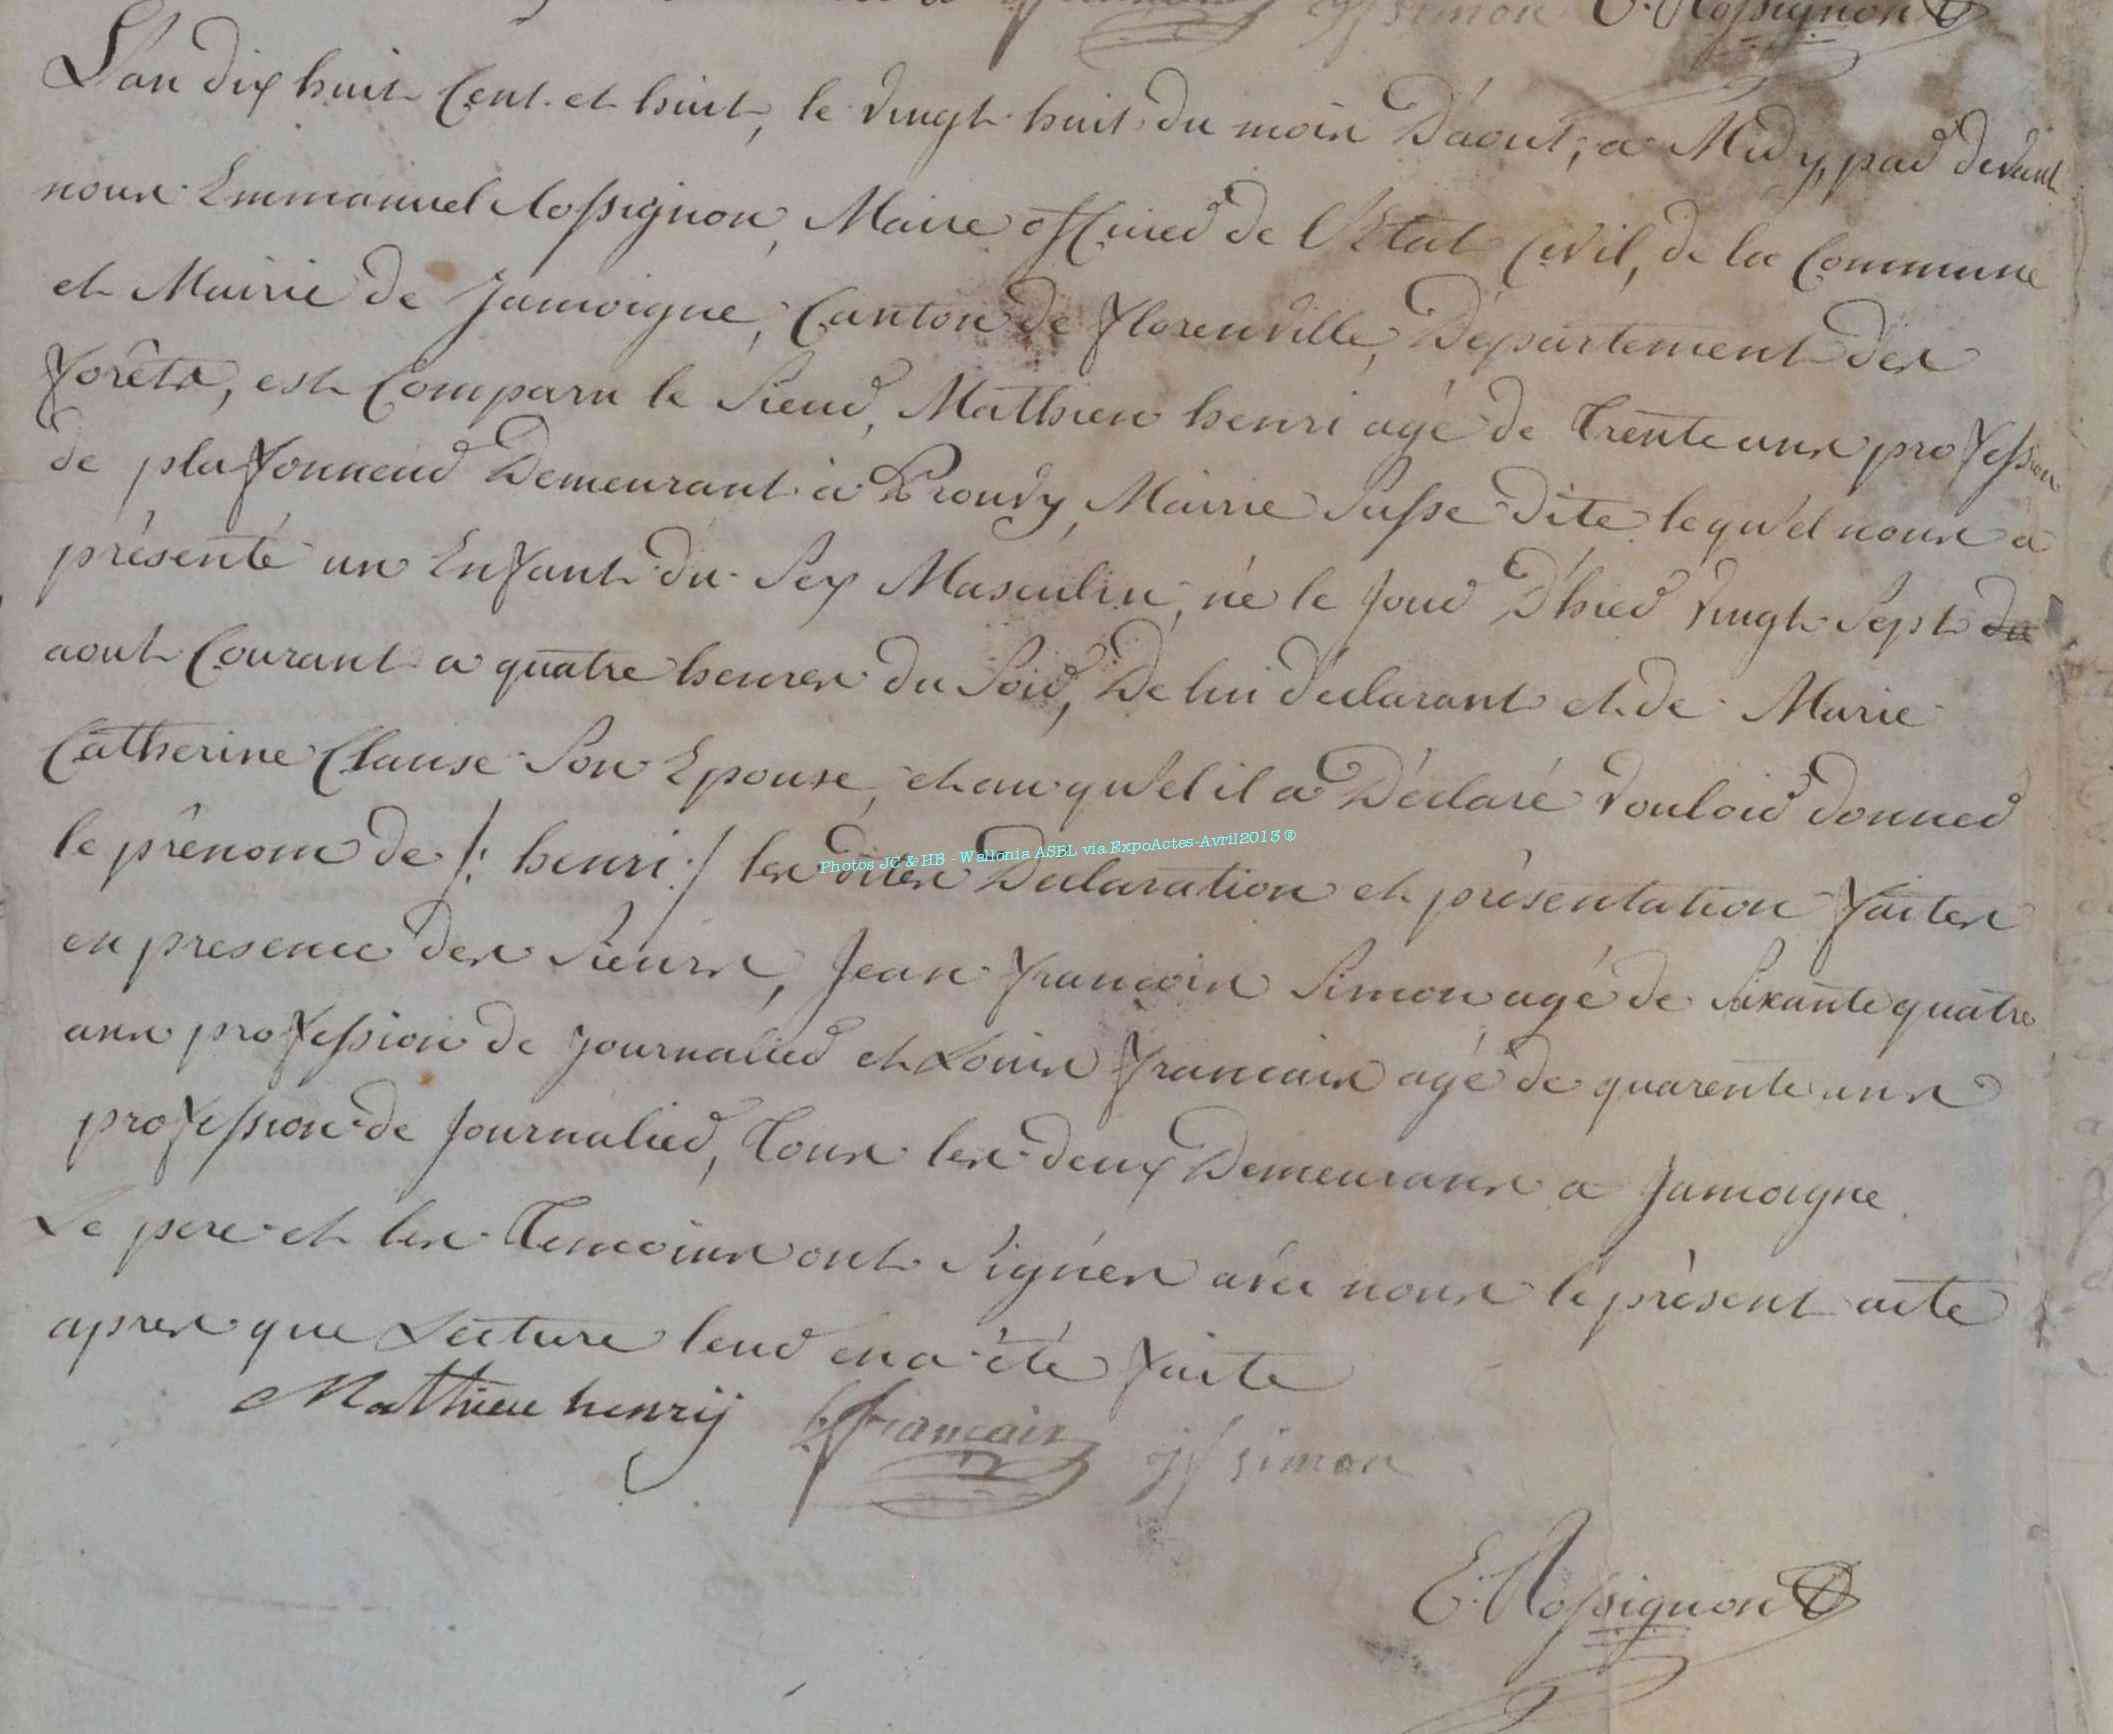 simon E. Rossignon
L'an dix huit Cent et huit, le vingt huit du mois D'aout, a Midy, par devant
nous Emmanuel Rossignon, Maire officier de l'Etat Civil, de la Commune
et Mairie de Jamoigne, Canton de florenville, Département des
forêts, est Comparu le Sieur, Mathieu henri agé de Trente ans profession
de plafonneur Demeurant à Prouvy, Mairie Susse dite lequ'el nous a
présenté un Enfant du Sex Masculin, né le jour D'hier vingt Sept du
aout Courant a quatre heures du Soir, De lui déclarant et de Marie
Catherine Clause Son Epouse, et auqu'el il a Déclaré vouloir donner
le prênom de /: henri :/ les dites Déclaration et présentation faites
Photos JC & HB - Wallonia ASBL via ExpoActes-Avril2013 ®
en presence des Sieurs, Jean francois Simon agé de Soixante quatre
ans profession de journalier et Louis francais agé de quarente ans
profession de journalier, Tous les deux Demeurans a Jamoigne.
Le pere et les Temoins ont Signés avec nous le présent acte
apres que Lecture leur en a été faite
Mathieu henrij francais jf simon
E. Rossignon